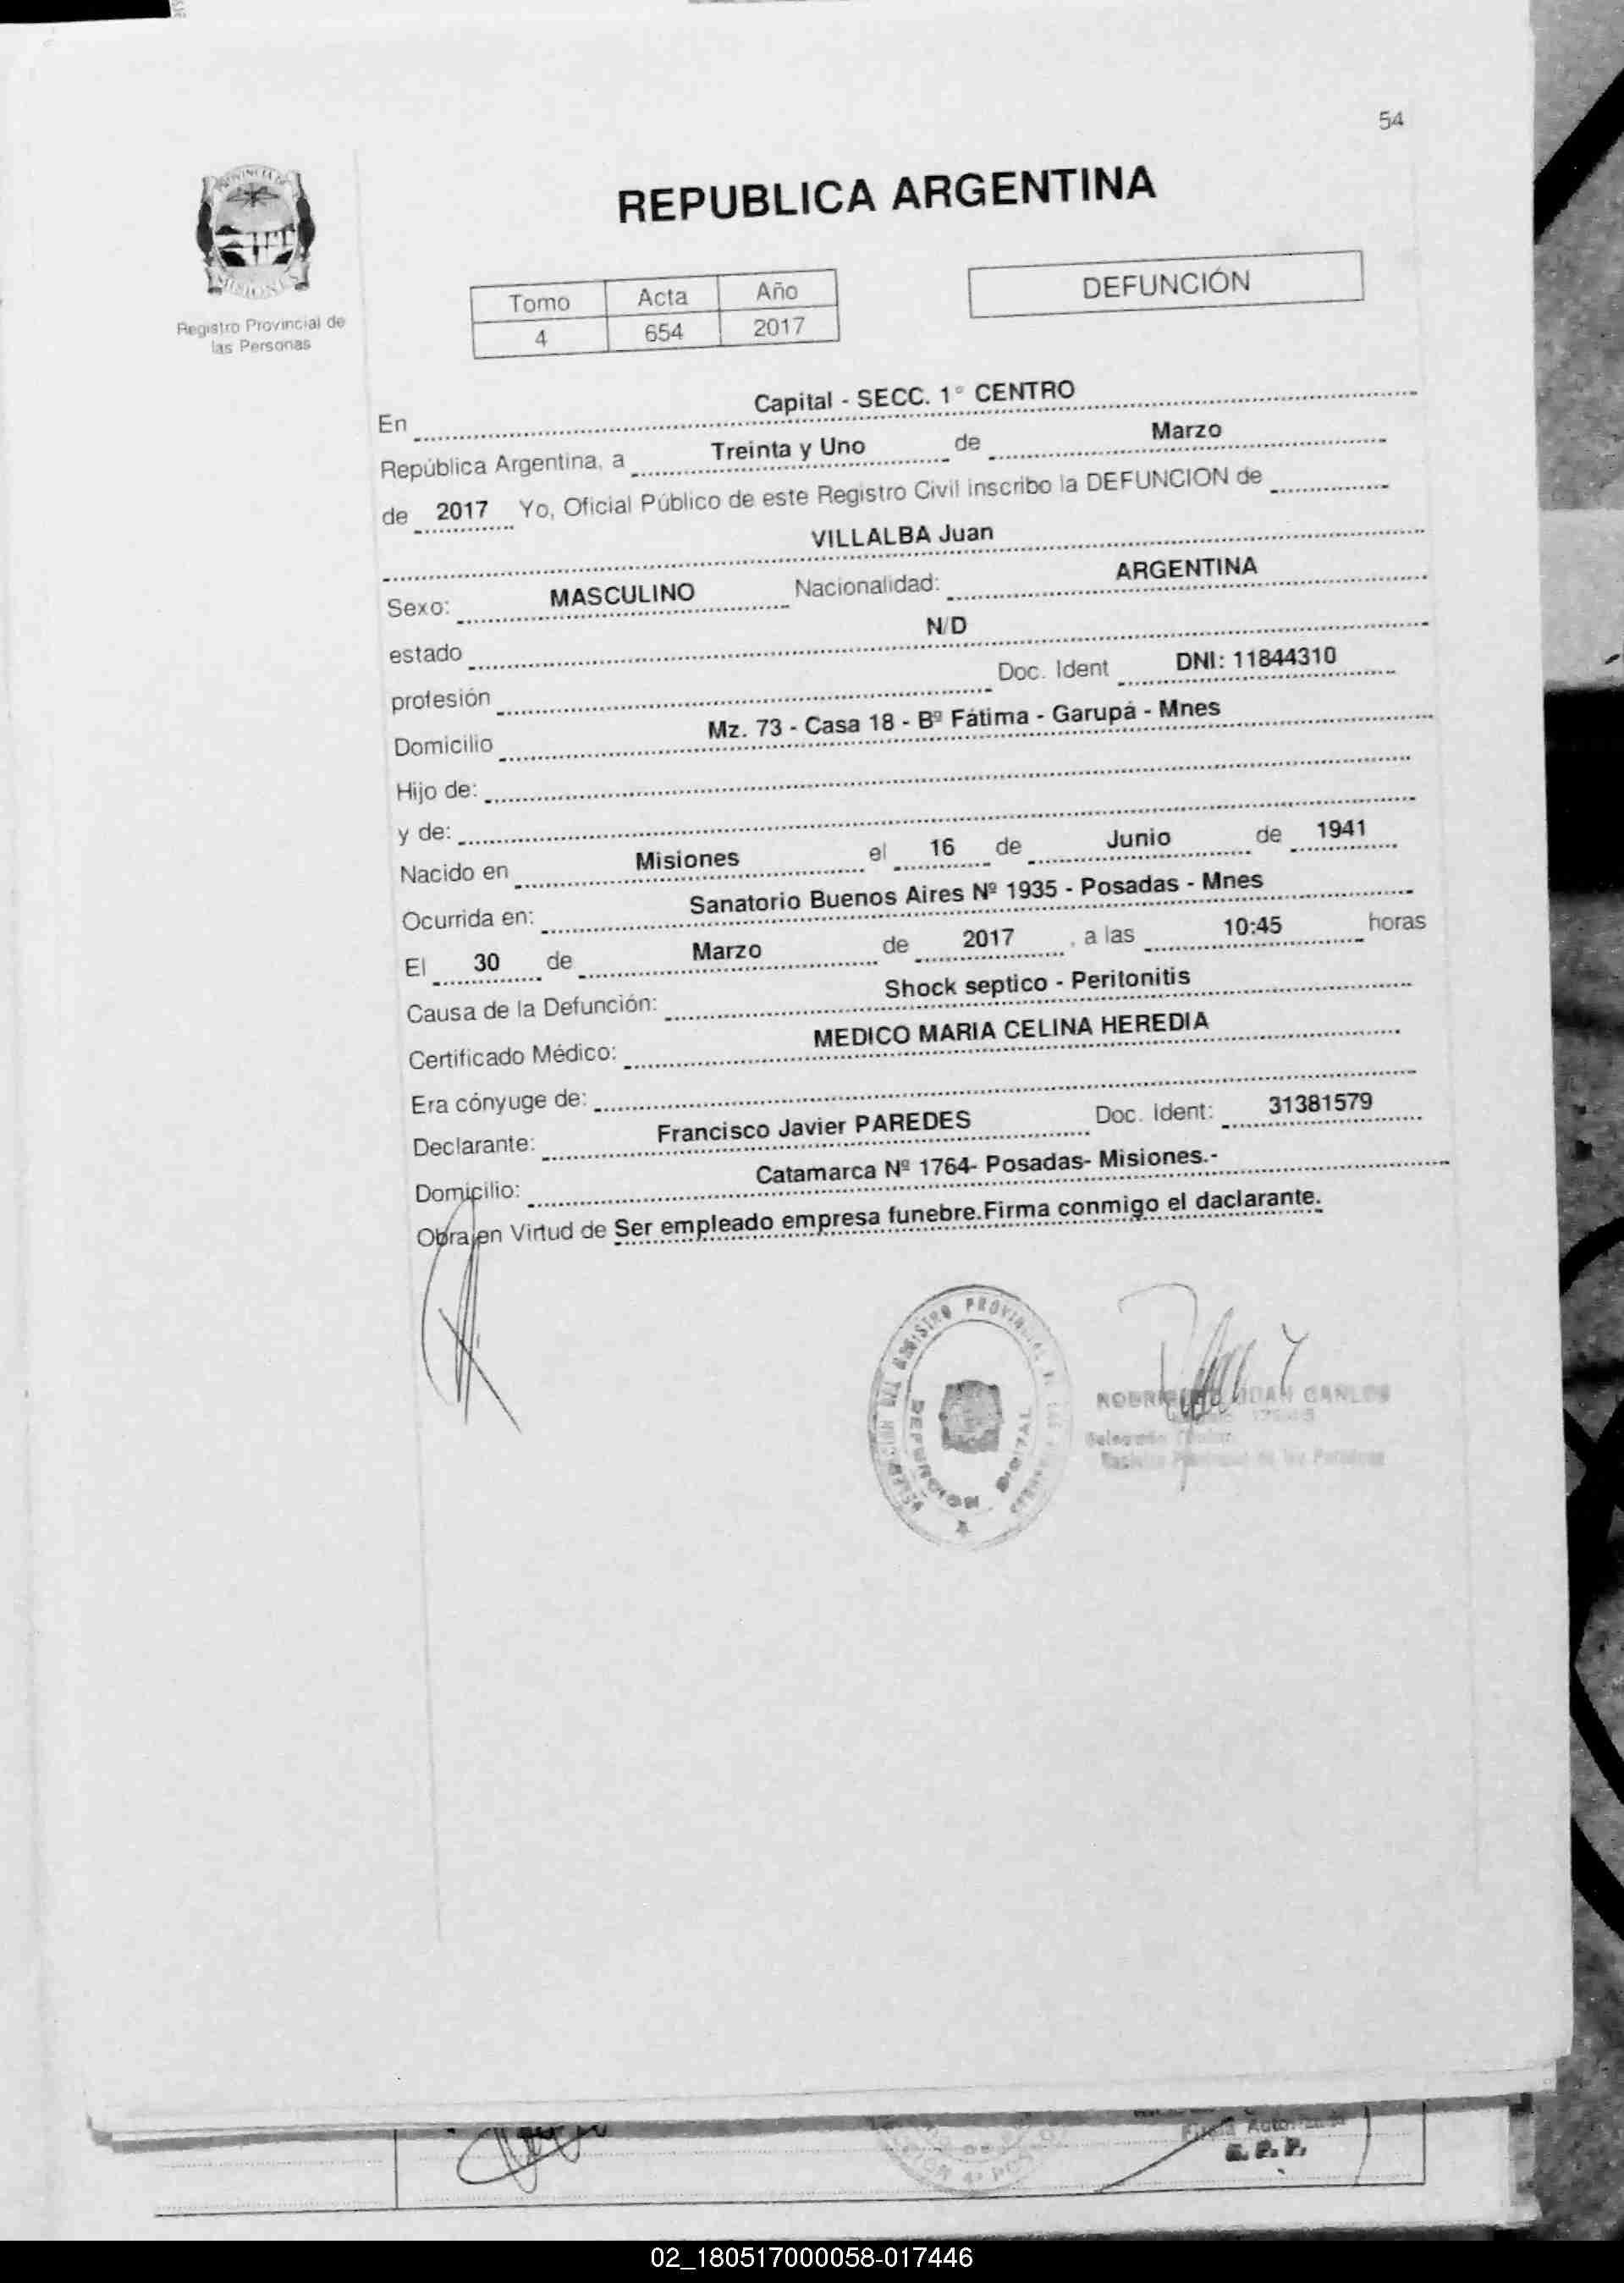 54
PROVINCIA DE
MISIONES
Registro Provincial de
las Personas
REPUBLICA ARGENTINA
Tomo Acta Año
4 654 2017
DEFUNCIÓN
En Capital - SECC. 1° CENTRO
República Argentina, a Treinta y Uno de Marzo
de 2017 Yo, Oficial Público de este Registro Civil inscribo la DEFUNCION de
VILLALBA Juan
Sexo: MASCULINO Nacionalidad: ARGENTINA
estado N/D
profesión Doc. Ident DNI: 11844310
Domicilio Mz. 73 - Casa 18 - Bº Fátima - Garupá - Mnes
Hijo de:
y de:
Nacido en Misiones el 16 de Junio de 1941
Ocurrida en: Sanatorio Buenos Aires Nº 1935 - Posadas - Mnes
El 30 de Marzo de 2017 , a las 10:45 horas
Causa de la Defunción: Shock septico - Peritonitis
Certificado Médico: MEDICO MARIA CELINA HEREDIA
Era cónyuge de:
Declarante: Francisco Javier PAREDES Doc. Ident: 31381579
Domicilio: Catamarca Nº 1764- Posadas- Misiones.-
Obra en Virtud de Ser empleado empresa funebre.Firma conmigo el daclarante.
REGISTRO PROVINCIAL
DEFUNCION DIGITAL
JUAN CARLOS
02_180517000058-017446